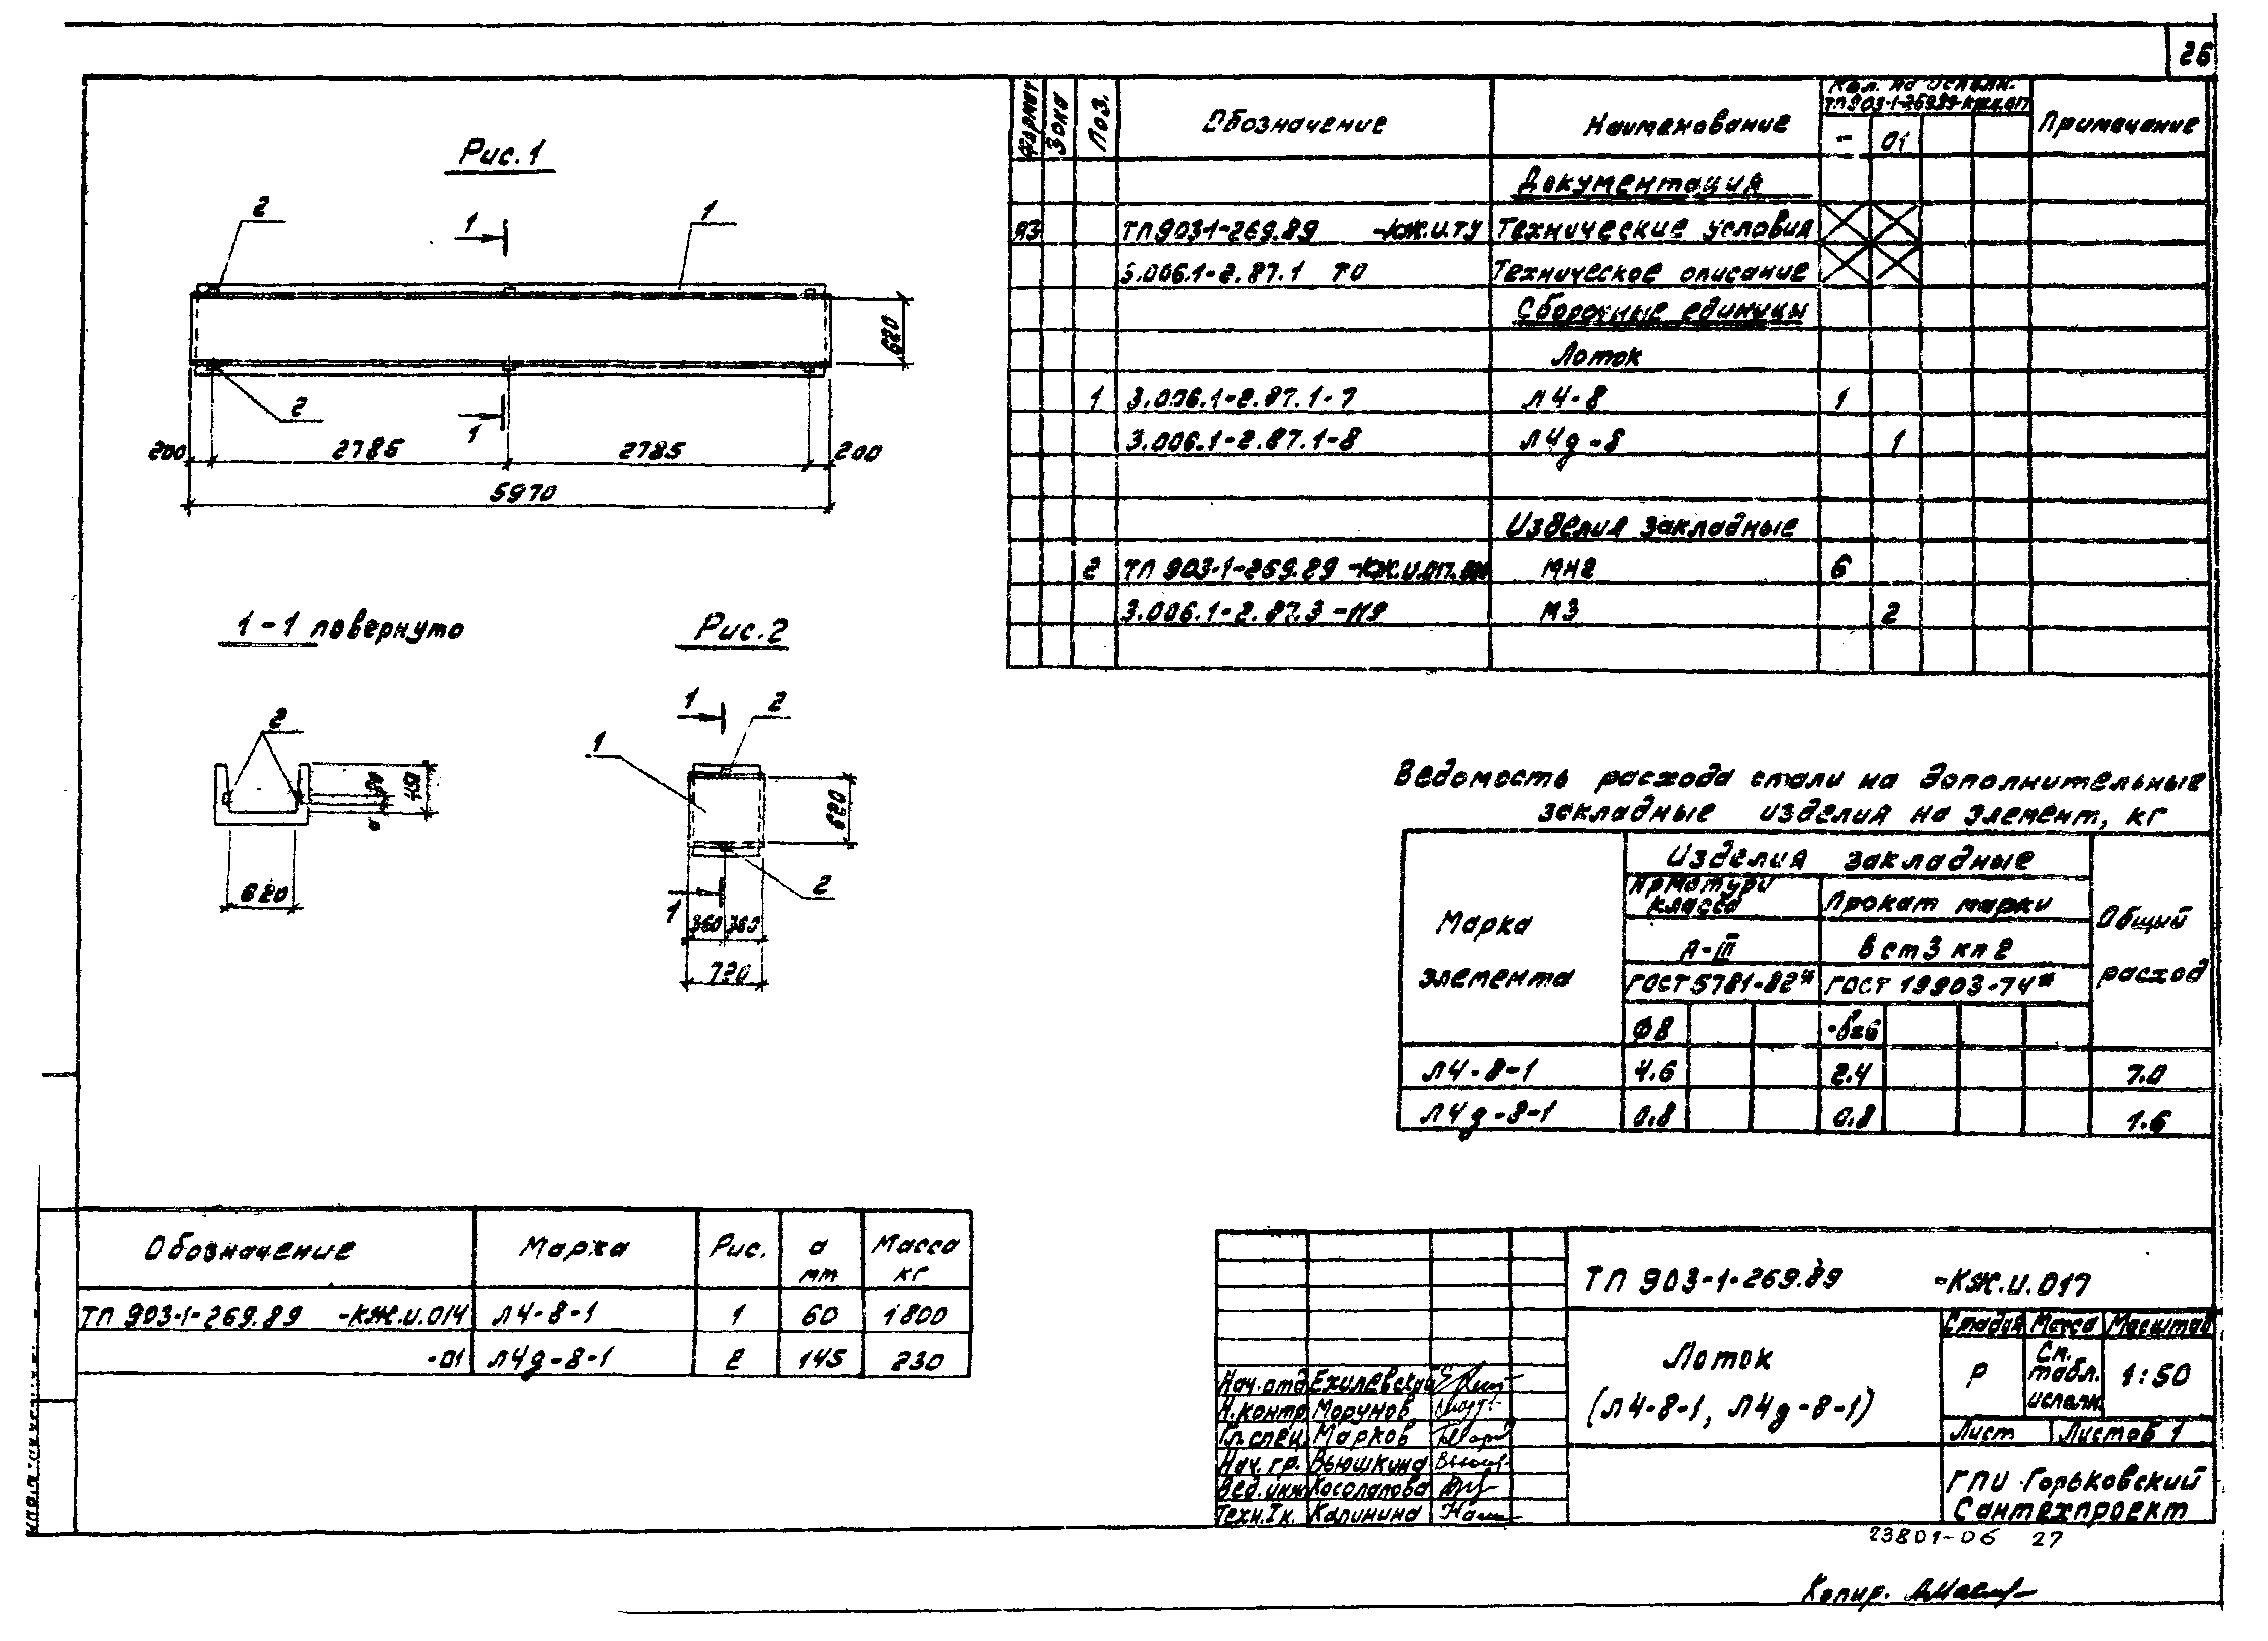 26
Рис. 1
2
1
1
620
2
1
200
2785
2785
200
5970
1-1 повернуто
2
а
620
Рис. 2
1
2
1
620
2
1
360
360
720
Формат
Зона
Поз.
Обозначение
Наименование
Кол. на исполн.
Примечание
-
01
Документация
А3 ТП 903-1-269.89 -КЖ.И.ТУ Технические условия
3.006.1-2.87.1 ТО Техническое описание
Сборочные единицы
Лоток
1 3.006.1-2.87.1-7 Л4-8 1
3.006.1-2.87.1-8 Л4д-8 1
Изделия закладные
2 ТП 903-1-269.89 -КЖ.И.ОП. МН2 6
3.006.1-2.87.3 М3 2
Ведомость расхода стали на дополнительные
закладные изделия на элемент, кг
Марка
элемента
Изделия закладные
Арматура
класса
Прокат марки
Общий
расход
А-III
Вст3 кп2
ГОСТ 5781-82*
ГОСТ 19903-74*
Ф8
-δ=6
Л4-8-1 4.6 2.4 7.0
Л4д-8-1 0.8 0.8 1.6
Обозначение Марка Рис. а
мм Масса
кг
ТП 903-1-269.89 -КЖ.И.014 Л4-8-1 1 60 1800
-01 Л4д-8-1 2 145 230
ТП 903-1-269.89 -КЖ.И.017
Лоток
(Л4-8-1, Л4д-8-1)
Стадия Масса Масштаб
Р
См.
табл.
исполн.
1:50
Лист Листов 1
ГПИ Горьковский
Сантехпроект
Нач. отд. Ехилевский
Н. контр. Морунов
Гл. спец. Марков
Нач. гр. Вьюшкина
Вед. инж. Косолапова
Техн. Iк. Калинина
23801-06 27
Копир.